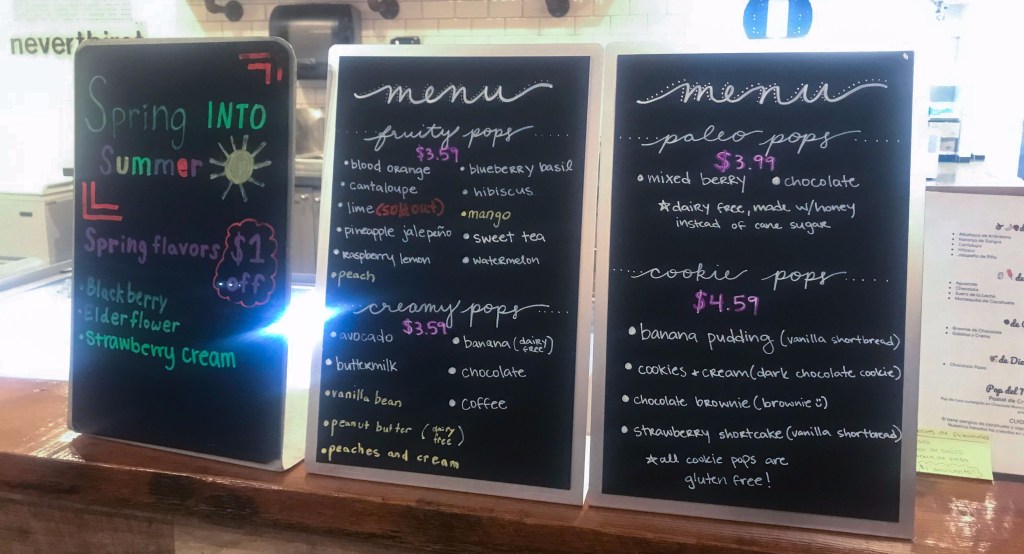 neverthirst
Spring INTO
Summer
Spring flavors $1 off
• Blackberry
• Elderflower
• Strawberry cream
menu
fruity pops
$3.59
• blood orange
• cantaloupe
• lime (sold out)
• pineapple jalepeño
• raspberry lemon
• peach
• blueberry basil
• hibiscus
• mango
• sweet tea
• watermelon
creamy pops
$3.59
• avocado
• buttermilk
• vanilla bean
• peanut butter (dairy free)
• peaches and cream
• banana (dairy free)
• chocolate
• coffee
menu
paleo pops
$3.99
• mixed berry • chocolate
☆ dairy free, made w/honey
instead of cane sugar
cookie pops
$4.59
• banana pudding (vanilla shortbread)
• cookies + cream (dark chocolate cookie)
• chocolate brownie (brownie ü)
• strawberry shortcake (vanilla shortbread)
☆ all cookie pops are
gluten free!